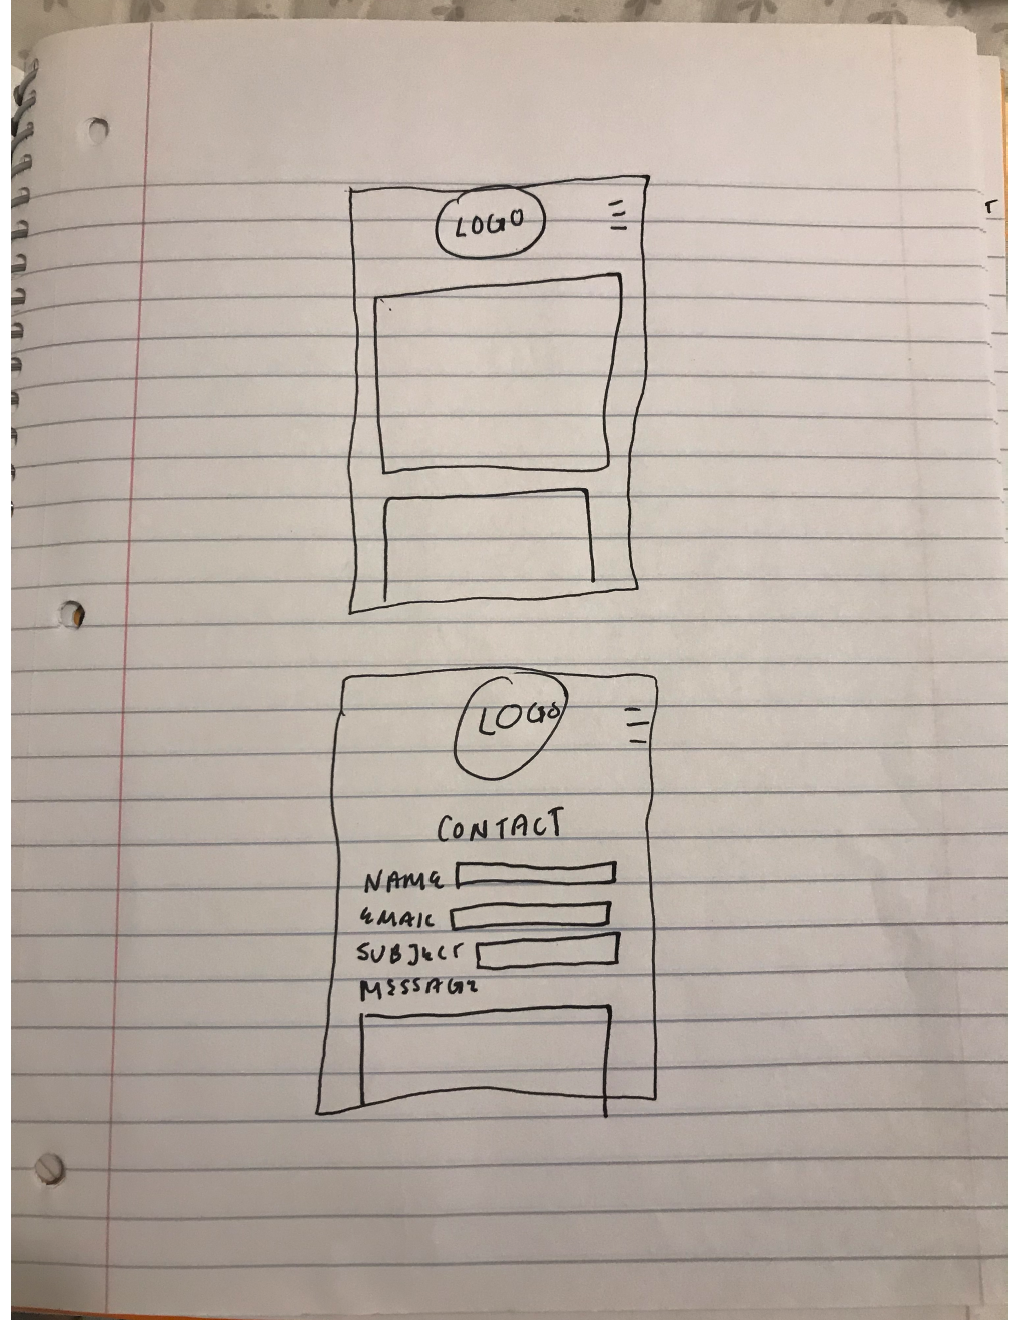 LOGO
LOGO
CONTACT
NAME
EMAIL
SUBJECT
MESSAGE